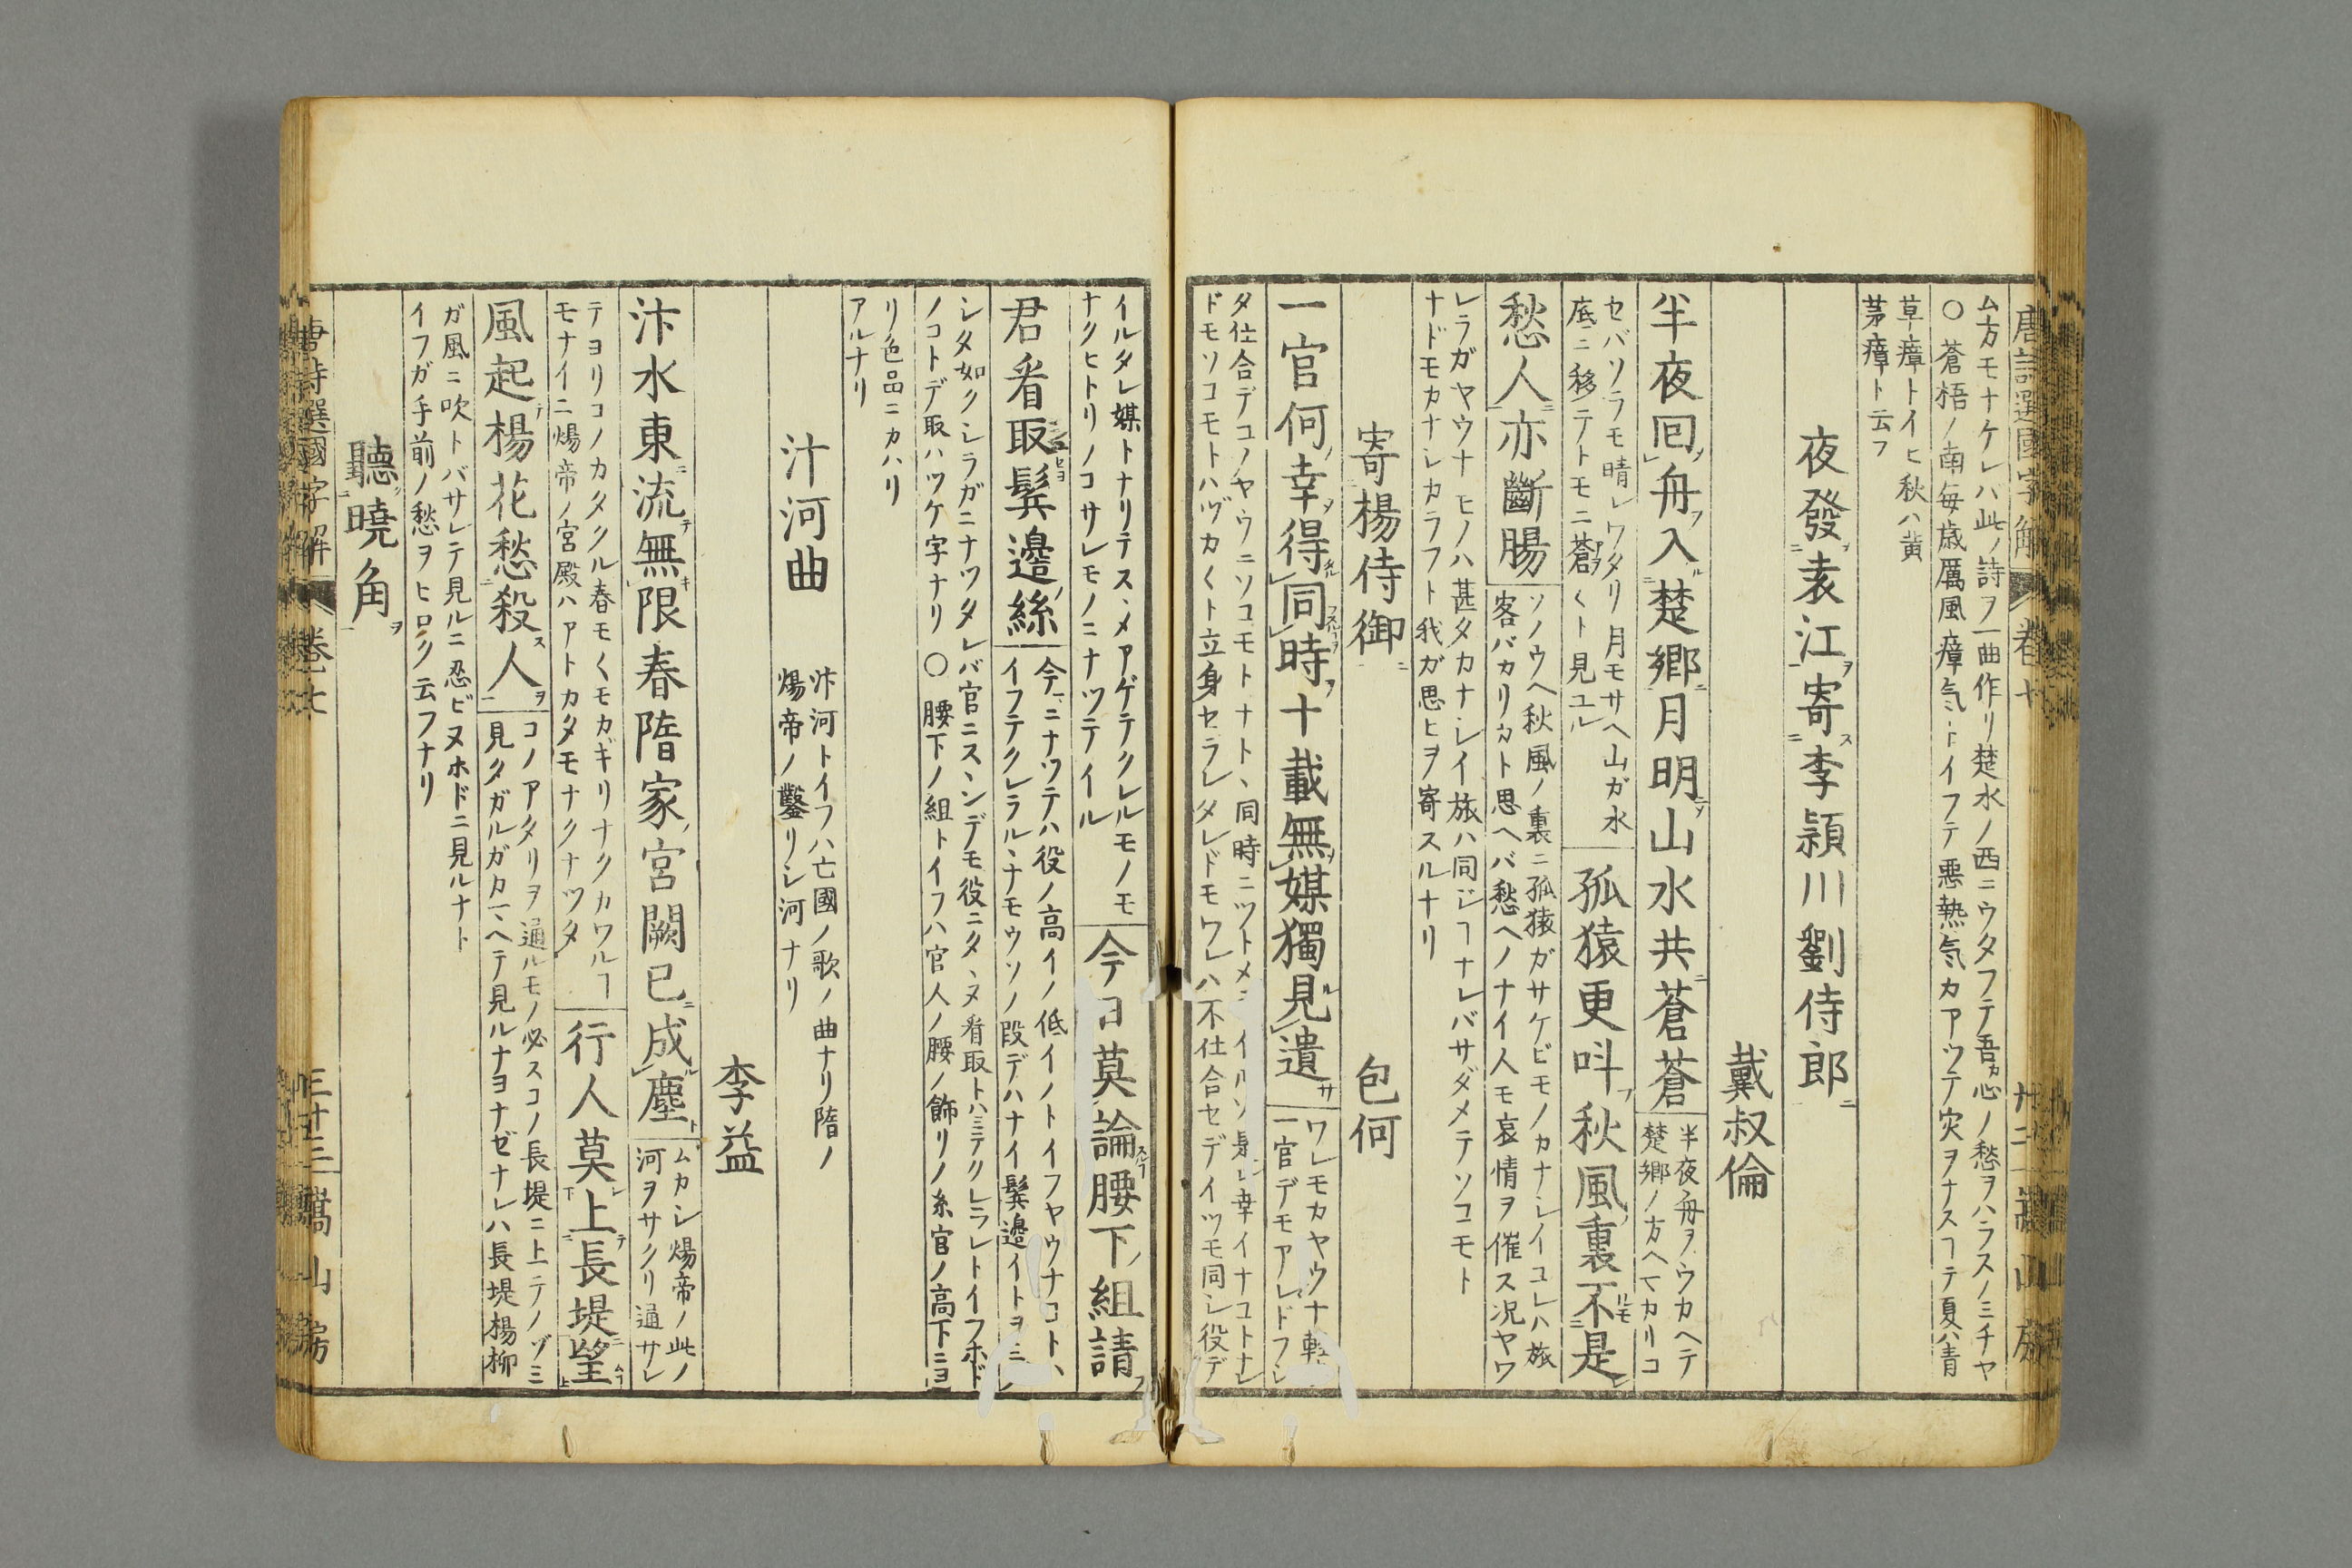 唐詩選國字解 卷七
嵩山房
ム方モナケレバ此ノ詩ヲ一曲作リ楚水ノ西ニウタフテ吾カ心ノ愁ヲハラスノミチヤ
○蒼梧ノ南毎歳厲風瘴気ㇳイフテ悪熱気カアツテ灾ヲナスヿテ夏ハ青
草瘴トイヒ秋ハ黄
茅瘴ト云フ
夜發袁江寄李潁川劉侍郎
戴叔倫
半夜回舟入楚鄉月明山水共蒼蒼
半夜舟ヲウカヘテ
楚郷ノ方ヘマカリコ
セバソラモ晴レワタリ月モサヘ山ガ水
底ニ移テトモニ蒼〱ト見ユル
孤猿更呌秋風裏不是
愁人亦斷腸
ソノウヘ秋風ノ裏ニ孤猿ガサケビモノカナシイコレハ旅
客バカリカト思ヘバ愁ヘノナイ人モ哀情ヲ催ス况ヤワ
レラガヤウナモノハ甚タカナシイ旅ハ同ジヿナレバサダメテソコモト
ナドモカナシカラフト我ガ思ヒヲ寄スルナリ
寄楊侍御
包何
一官何幸得同時十載無媒獨見遺
ワレモカヤウナ軽
一官デモアレドフシ
タ仕合デコノヤウニソコモトナト、同時ニツトメ イルソ身レ幸イナコトナレ
ドモソコモトハヅカ〱ト立身セラレタレドモワレハ不仕合セデイツモ同シ役デ
イルタレ媒トナリテス、メアゲテクレルモノモ
ナクヒトリノコサレモノニナツテイル
今日莫論腰下組請
君看取鬂邊絲
今ニナツテハ役ノ高イノ低イノトイフヤウナコトハ
イフテクレラル、ナモウソノ段デハナイ鬂邉イトヲミ
シタ如クシラガニナツタレバ官ニスヽンデモ役ニタ、ヌ看取トハミテクレラレトイフホド
ノコトデ取ハツケ字ナリ○腰下ノ組トイフハ官人ノ腰ノ飾リノ糸官ノ高下ニヨ
リ色品ニカハリ
アルナリ
汴河曲
汴河トイフハ亡國ノ歌ノ曲ナリ隋ノ
煬帝ノ鑿リシ河ナリ
李益
汴水東流無限春隋家宮闕已成塵
ムカシ煬帝ノ此ノ
河ヲサクリ通サレ
テヨリコノカタクル春モ〱モカギリナクカワルヿ
モナイニ煬帝ノ宮殿ハアトカタモナクナツタ
行人莫上長堤望
風起楊花愁殺人
コノアタリヲ通ルモノ必スコノ長堤ニ上テノヅミ
見タガルガカマヘテ見ルナヨナゼナレハ長堤楊柳
ガ風ニ吹トバサレテ見ルニ忍ビヌホドニ見ルナト
イフガ手前ノ愁ヲヒロク云フナリ
聽曉角
唐詩選國字解 卷七 三十三 嵩山房